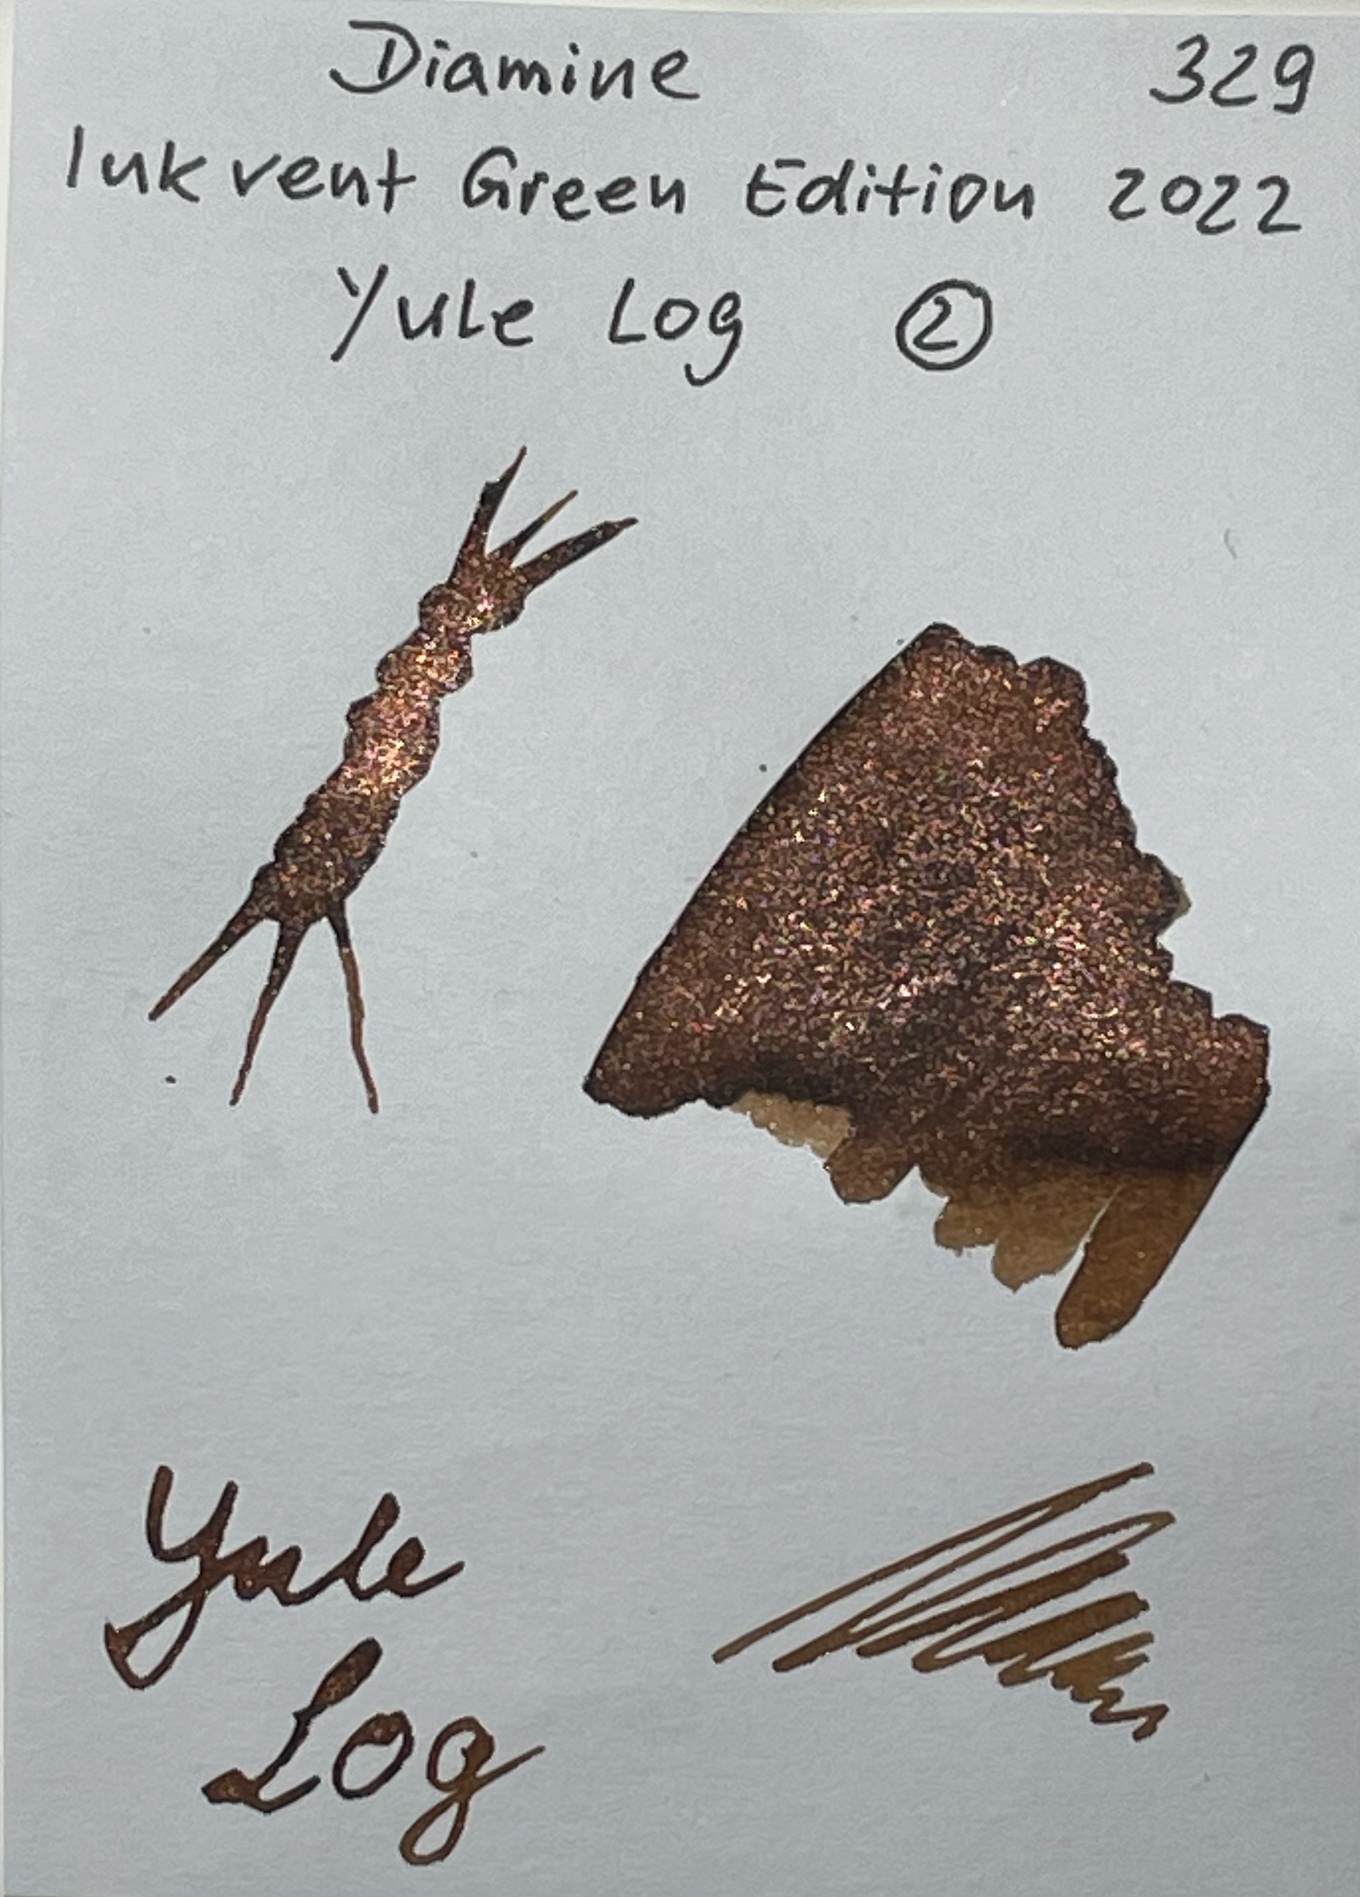 Diamine 329
Inkvent Green Edition 2022
Yule Log 2
Yule
Log